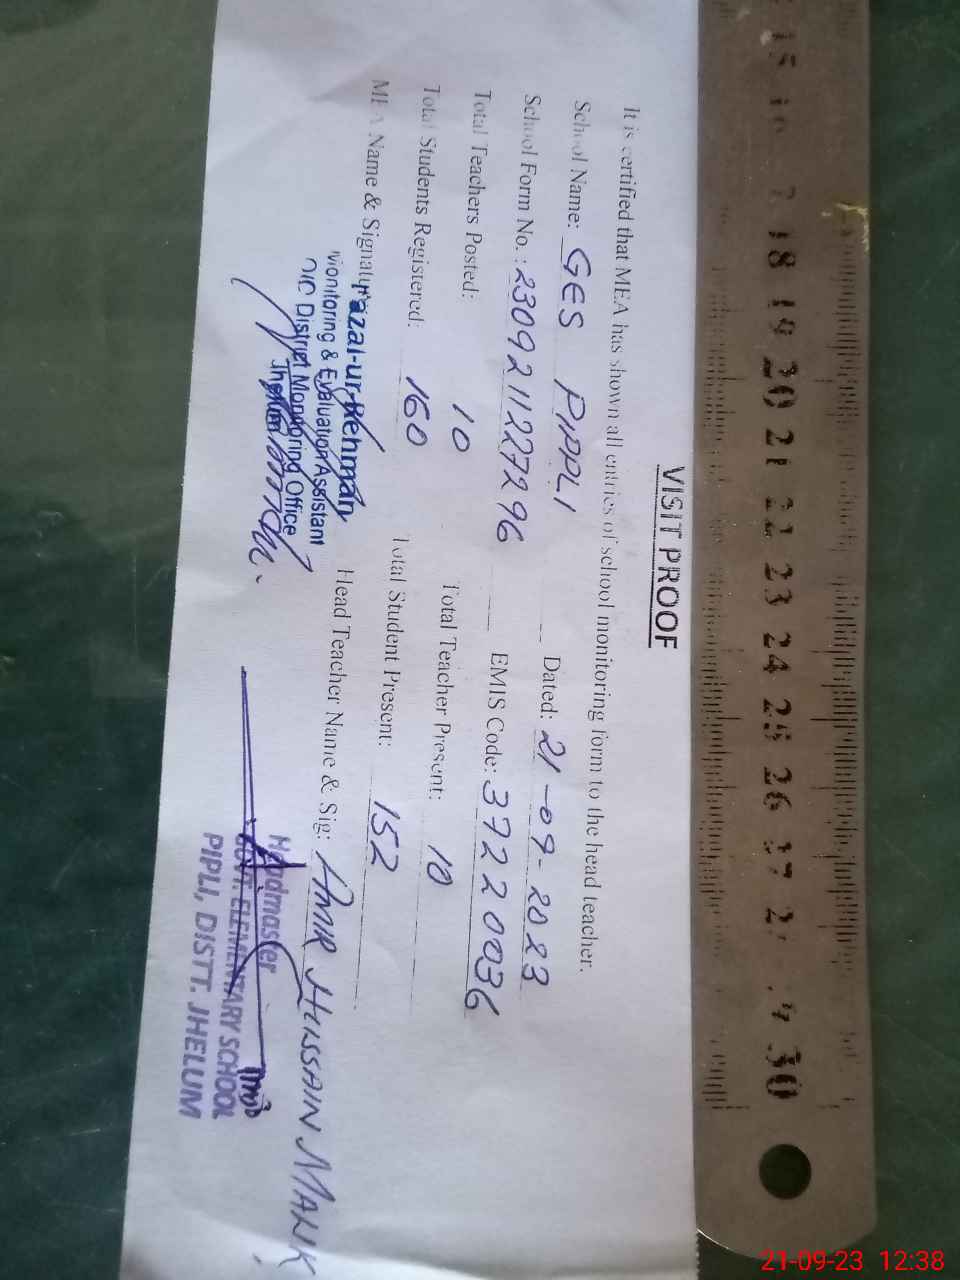 VISIT PROOF
It is certified that MEA has shown all entries of school monitoring form to the head teacher.
School Name: GES PIPPLI Dated: 21-09-2023
School Form No.: 2309211227296 EMIS Code: 37220036
Total Teachers Posted: 10 Total Teacher Present: 10
Total Students Registered: 160 Total Student Present: 152
MEA Name & Signatur Head Teacher Name & Sig: AMIR HUSSAIN MALIK
Fazal-ur-Rehman
Monitoring & Evaluation Assistant
O/O District Monitoring Office
Jhelum
Headmaster
GOVT. ELEMENTARY SCHOOL
PIPLI, DISTT. JHELUM
15 16 7 18 19 20 21 22 23 24 25 26 27 2 30
21-09-23 12:38